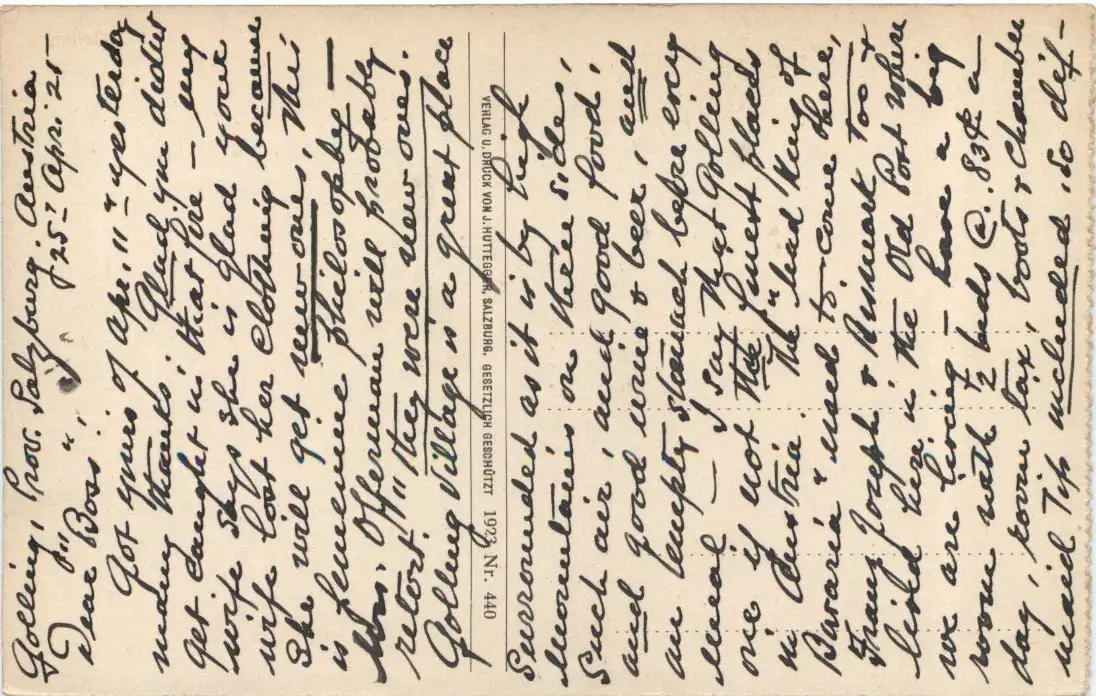 Golling, Prov. Salzburg. Austria
25- Apr. 25-
Dear Boss",
Got yours of Apr. 11" yesterday
many thanks. Glad you didnt
get caught in that fire – my
wife says she is glad your
wife lost her clothing because
She will get new ones, This
is feminine philosophy –
Mrs. Offerman will probably
retort "they were new ones".
Golling Village is a great place
VERLAG U. DRUCK VON J. HUTTEGGER, SALZBURG. GESETZLICH GESCHÜTZT 1923 Nr. 440
Surrounded as it is by high
Mountains on three sides,
Such air, and good food,
and good wine & beer, and
an empty stomach before every
meal – I say that Golling
one if not the finest places
in Austria. The "mad King of
Bavaria" used to come there,
Franz Joseph & Bismark too &
lived here in the Old Post where
we are living – have a big
room with 2 beds @ .83¢ a
day, room tax, boots & chamber
maid Tip included, so def-